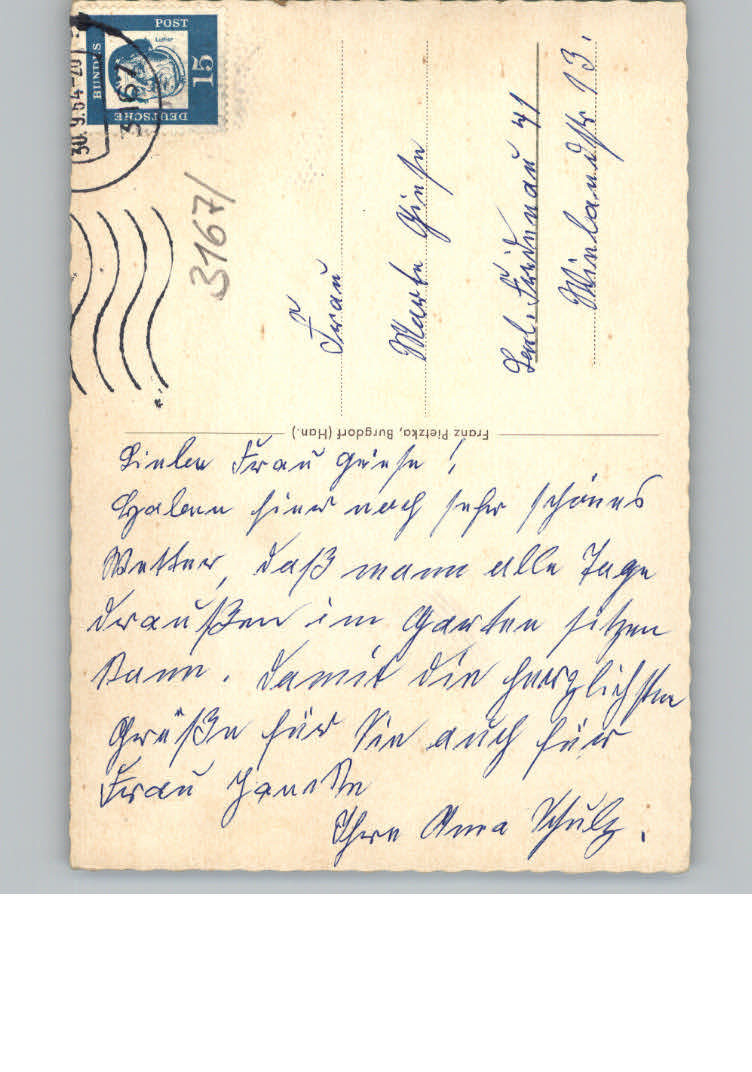 DEUTSCHE
BUNDES
POST
15
Luther
30.9.64-20
3167
3167/
Frau
Marta Giese
Berl. Friedenau 41
Wielandstr 13.
Franz Pietzka, Burgdorf (Han.)
Liebe Frau Giese!
Haben hier noch sehr schönes
Wetter, daß mann alle Tage
draußen im Garten sitzen
kann. Damit die herzlichsten
Grüße für Sie auch für
Frau
Ihre Anna Schulz.